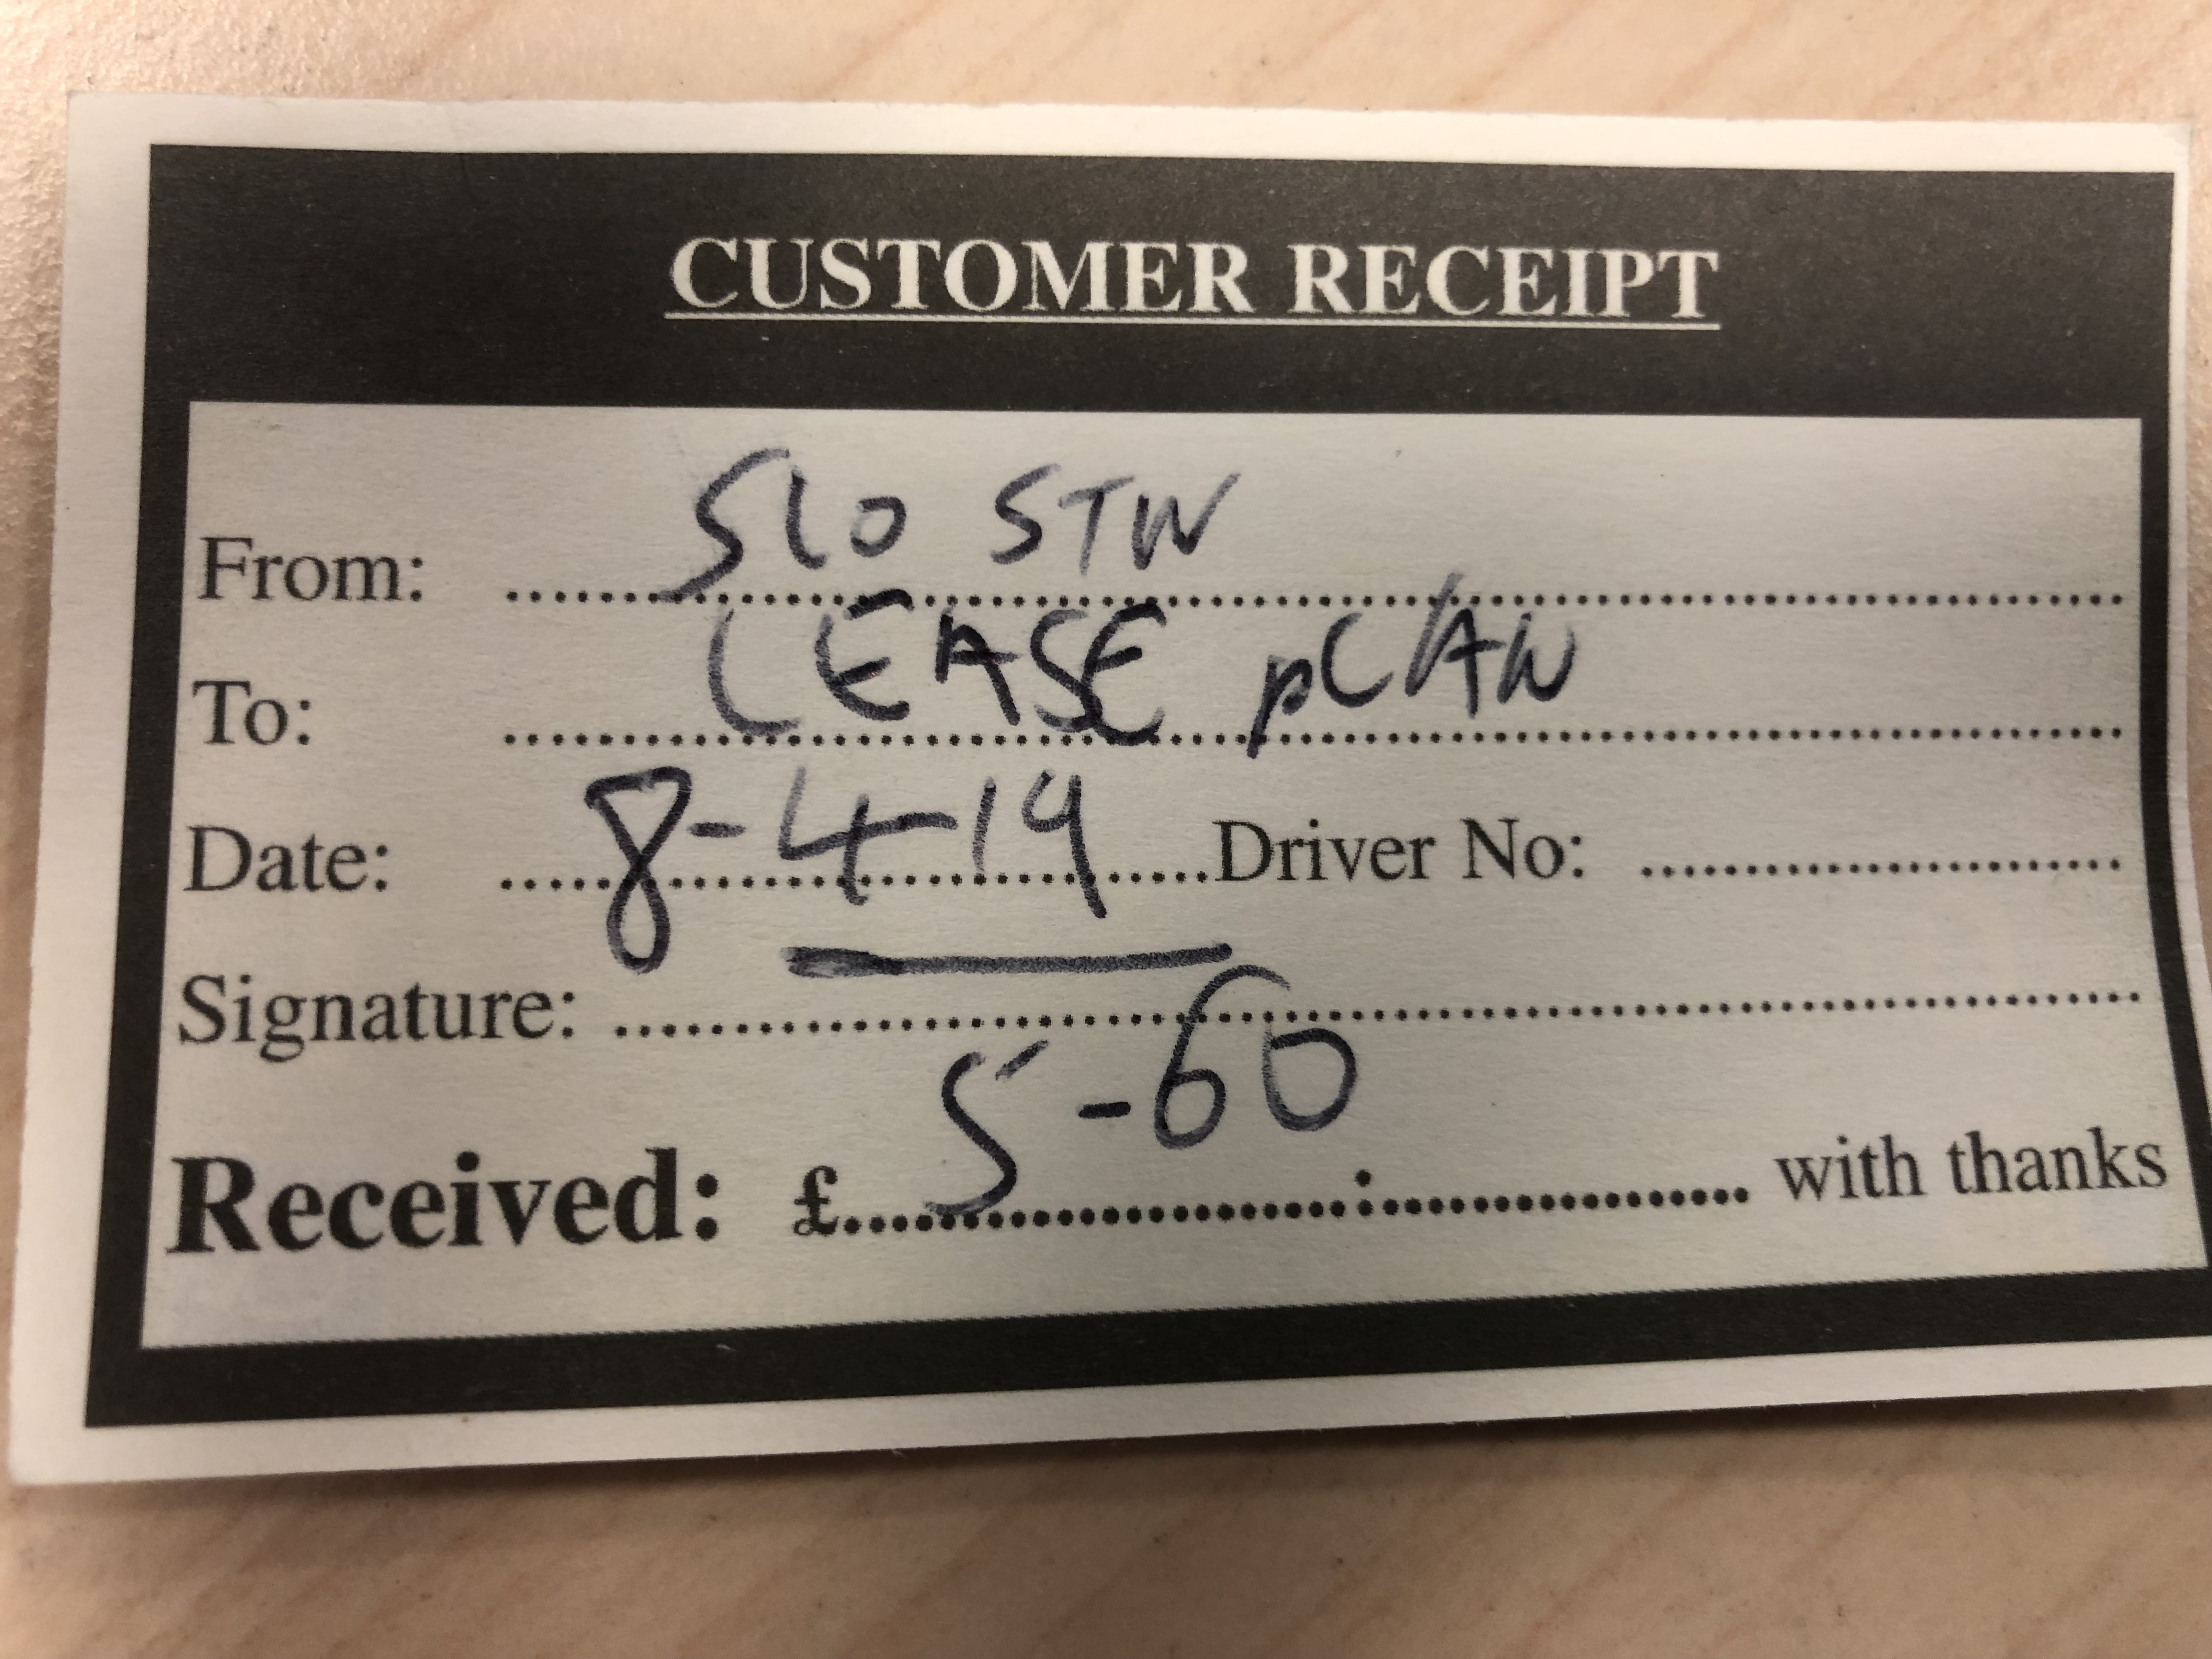 CUSTOMER RECEIPT
From: SLO STN
To: LEASE PLAN
Date: 8-4-19 Driver No:
Signature:
Received: £ 5-60 with thanks